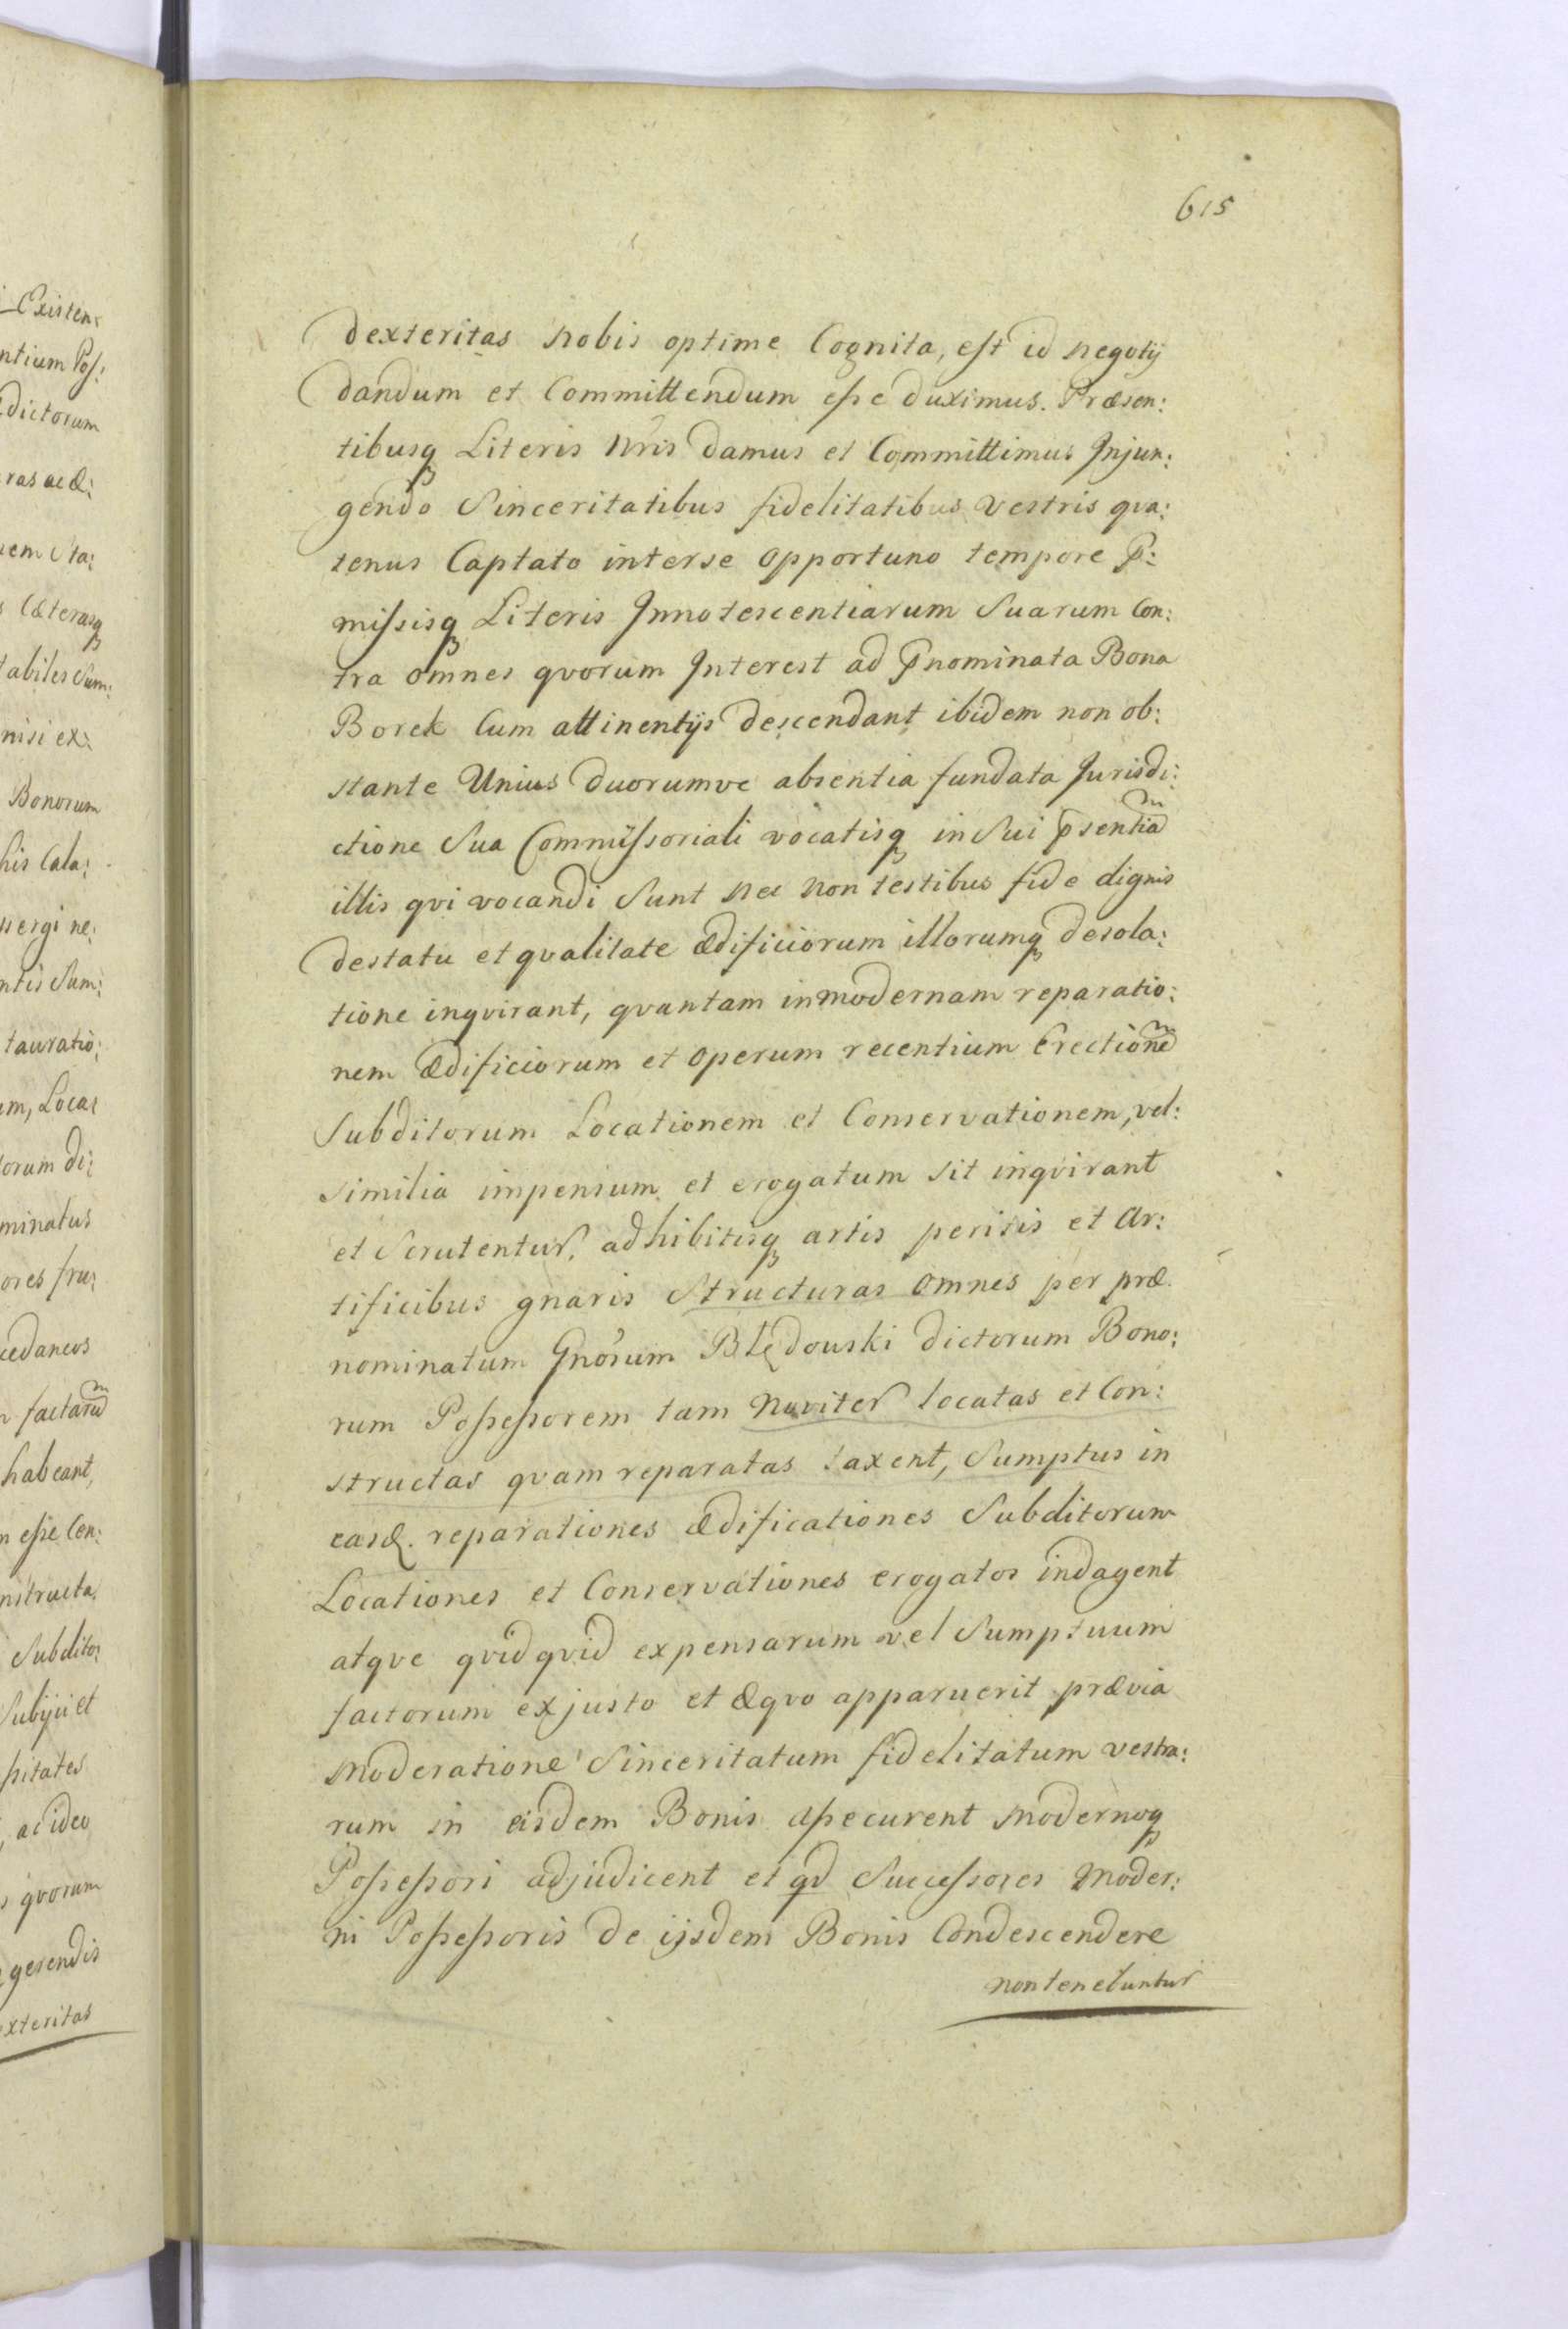 Existen:
ntium Pos:
dictorum
ras ac æ:
em Sta:
Cæterasq
tabiles Sum:
nisi ex:
Bonorum
his Cala:
nergi ne:
ntis Sum:
tauratio:
um, Loca:
orum di:
minatus
ores fru:
cedaneos
factarum
habeant,
esse Cen:
nstructa
Subdito:
Subijci et
sitates
ac ideo
quorum
gerendis
exteritas
615
dexteritas nobis optime Cognita, est id negotij
dandum et Committendum esse duximus. Præsen:
tibusq Literis Nris damus et Committimus Injun:
gendo Sinceritatibus fidelitatibus vestris qva:
tenus Captato interse opportuno tempore P:
missisq Literis Innotescentiarum Suarum Con:
tra omnes qvorum Interest ad Pnominata Bona
Borek Cum attinentijs descendant ibidem non ob:
stante Unius duorumve absentia fundata Jurisdi:
ctione Sua Commissoriali vocatisq in Sui psentia
illis qvi vocandi Sunt nec non testibus fide dignis
destatu et qvalitate ædificiorum illorumq desola:
tione inqvirant, qvantam inmodernam reparatio:
nem ædificiorum et operum recentium Erectione
Subditorum Locationem et Conservationem, vel:
similia impensum et erogatum sit inqvirant
et Scrutentur, adhibitisq artis peritis et Ar:
tificibus gnaris Structuras omnes per præ
nominatum Gnosum Błędouski dictorum Bono:
rum Possessorem tam Noviter locatas et Con:
structas qvam reparatas taxent, Sumptus in
easd. reparationes ædificationes Subditorum
Locationes et Conservationes erogatos indagent
atqve qvidqvid expensarum vel Sumptuum
factorum ex justo et æqvo apparuerit prævia
Moderatione Sinceritatum fidelitatum vestra:
rum in eisdem Bonis assecurent Modernoq
Possessori adjudicent et qd Successores Moder:
ni Possessoris de ijsdem Bonis Condescendere
non tenebuntur